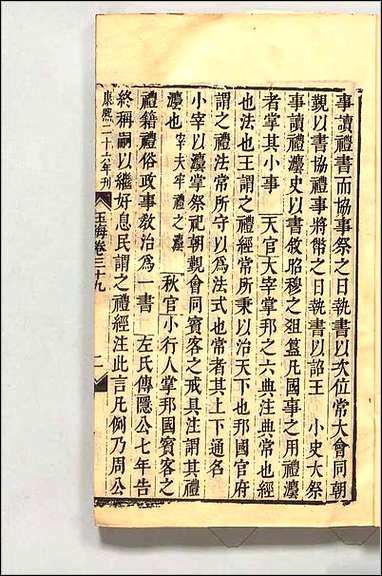 事讀禮書而協事祭之日執書以次位常大會同朝
覲以書協禮事將幣之日執書以詔王　小史大祭
事讀禮灋史以書敘昭穆之俎簋凡國事之用禮灋
者掌其小事　天官大宰掌邦之六典注典常也經
也法也王謂之禮經常所秉以治天下也邦國官府
謂之禮法常所守以為法式也常者其上下通名
小宰以灋掌祭祀朝覲會同賓客之戒具注謂其禮
灋也　宰夫牢禮之灋　秋官小行人掌邦國賓客之
禮籍禮俗政事教治為一書　左氏傳隱公七年告
終稱嗣以繼好息民謂之禮經注此言凡例乃周公
康熙二十六年刊　玉海卷三十九　二